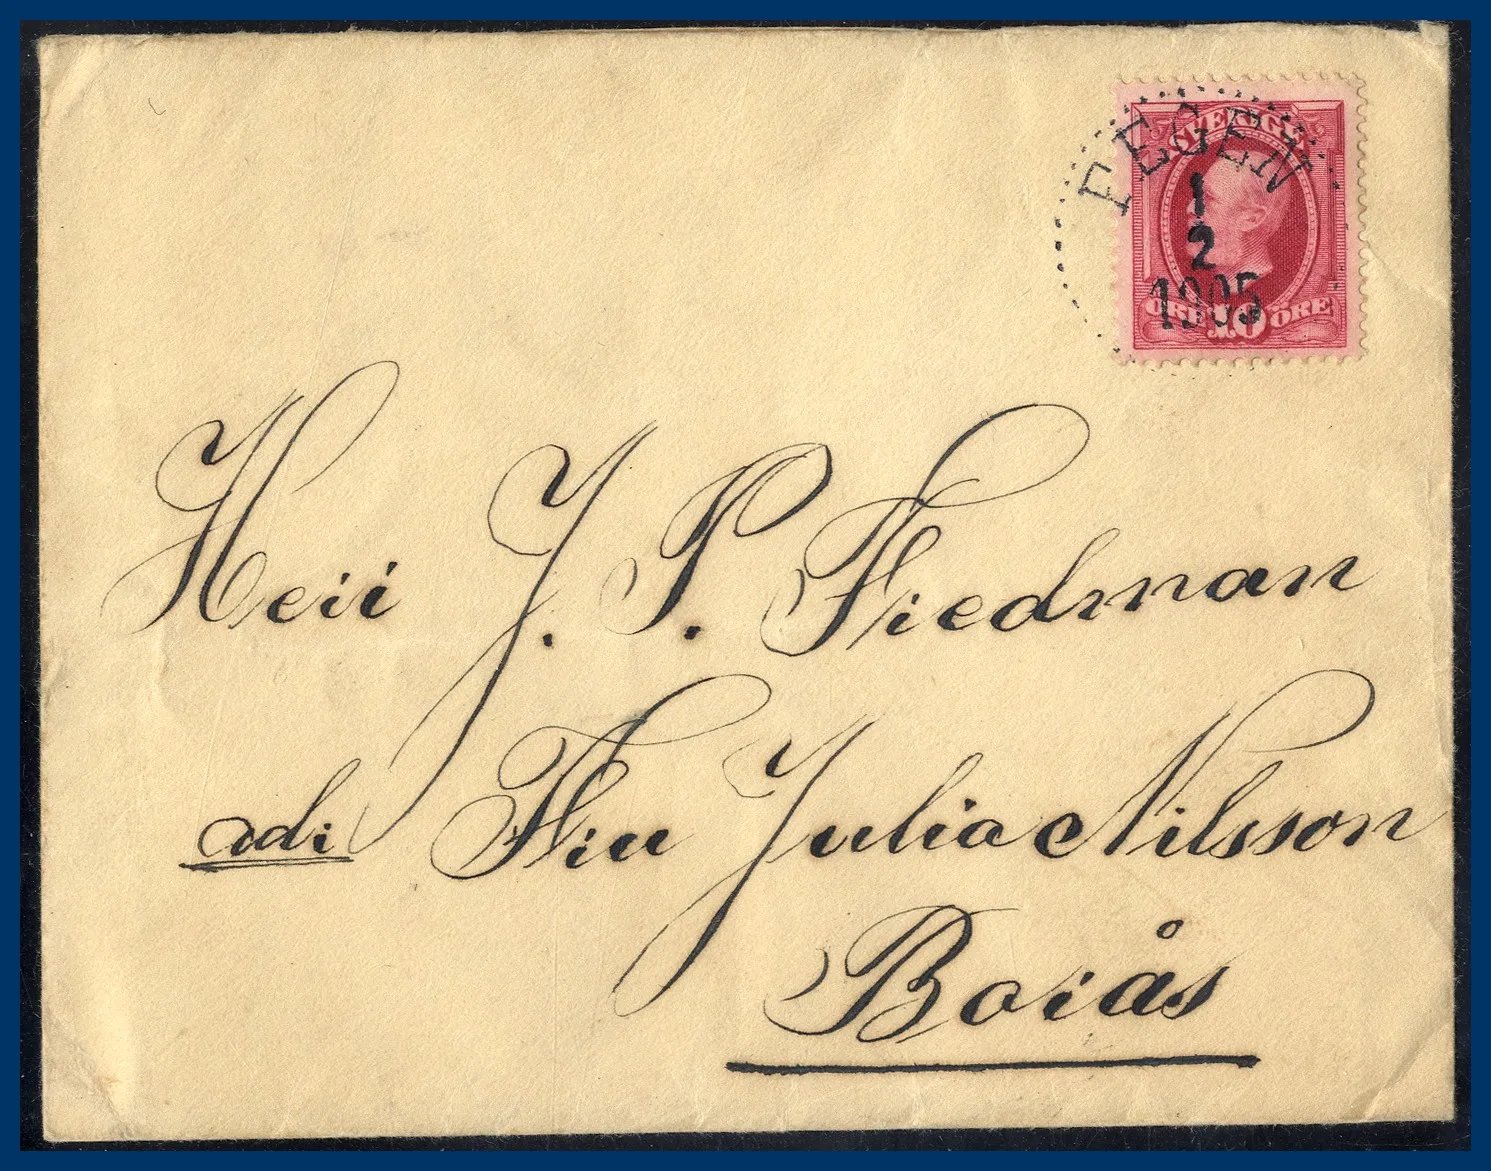 SVERIGE
FEGEN
1
2
1905
ÖRE 10 ÖRE
Herr J. P. Friedman
adr Fru Julia Nilsson
Borås